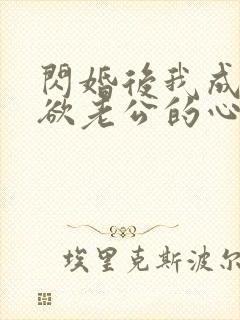 閃婚後我成
欲老公的心
埃里克斯波尔